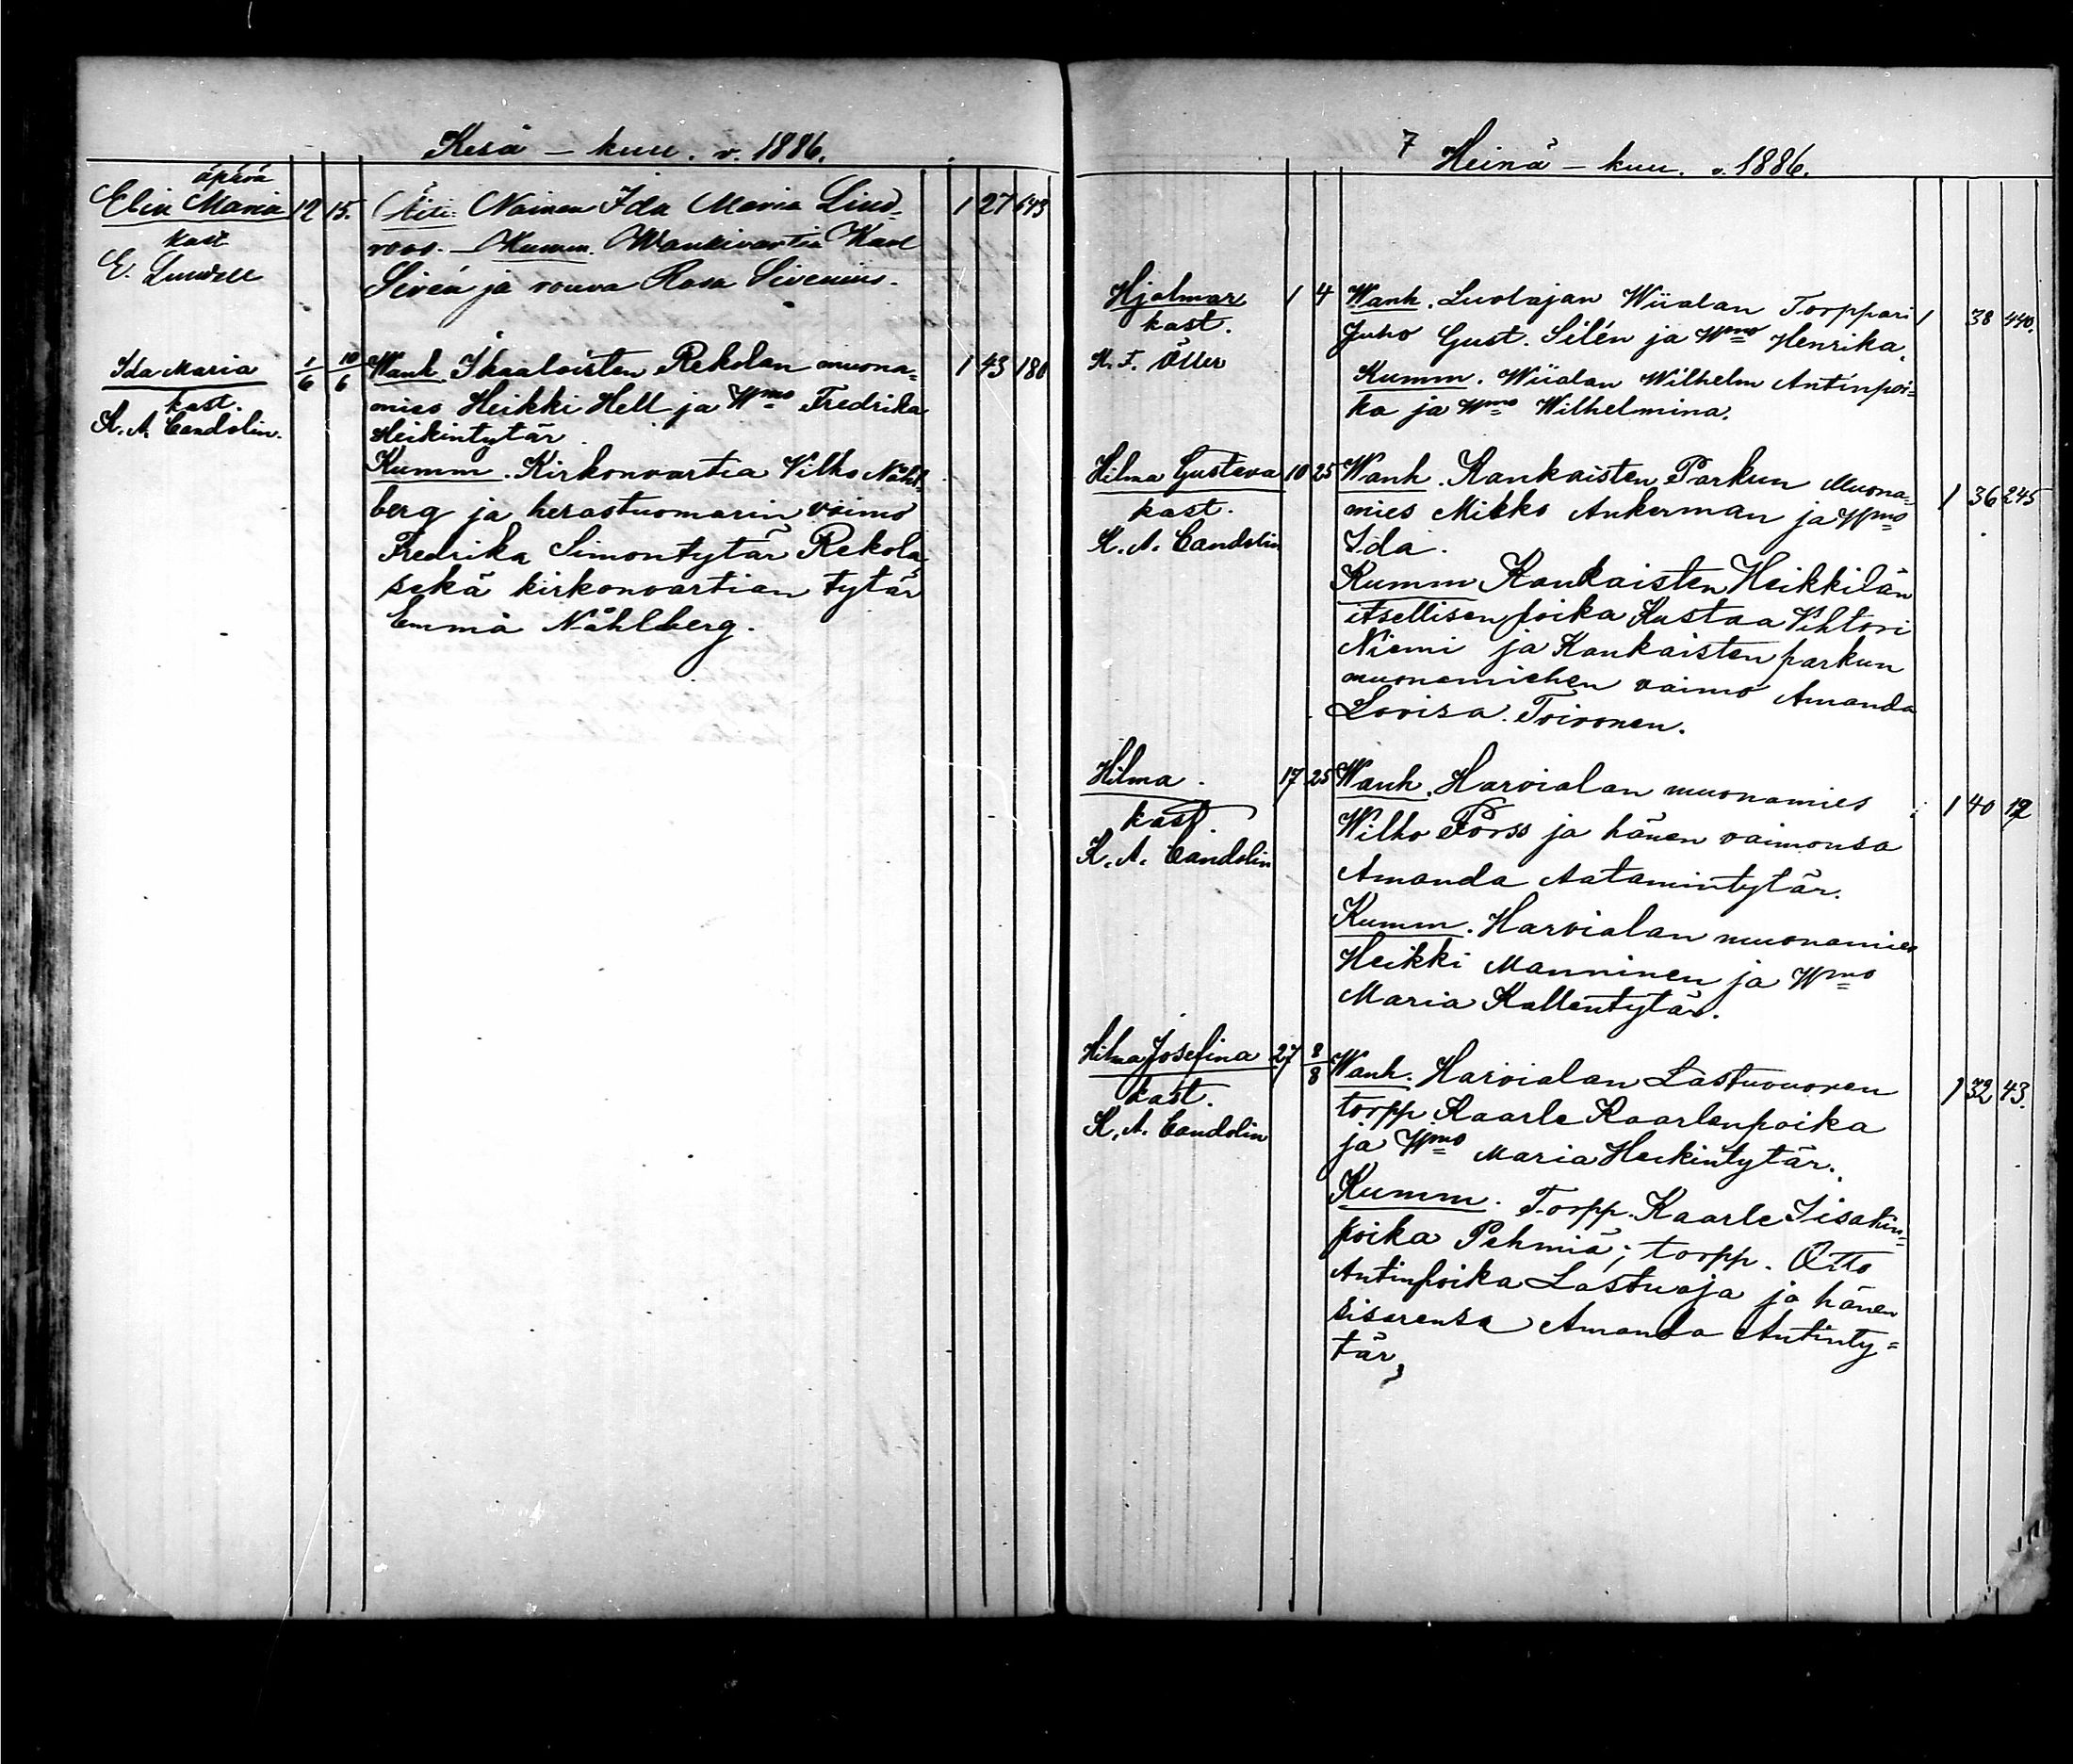 Kesä - kuu. v. 1886.
äpärä
Elin Maria 12 15. Äiti: Nainen Ida Maria Lind= 1 27 643
kast roos. - Kumm. Wankivartia Karl
E. Lindell Sirén ja rouva Rosa Sirenius.
Ida Maria 1/6 10/6 Wanh. Ikaaloisten Rekolan muona= 1 43 180
kast. mies Heikki Hell ja Wmo Fredrika
K. A. Candolin. Heikintytär.
Kumm. Kirkonvartia Vilho Nåhl=
berg ja herastuomarin vaimo
Fredrika Simontytär Rekola,
sekä kirkonvartian tytär
Emma Nåhlberg.
7 Heinä - kuu. v. 1886.
Hjalmar 1 4 Wanh. Luolajan Wiialan Torppari 1 38 440.
kast. Juho Gust. Silén ja Wmo Henrika.
K. F. Kumm. Wiialan Wilhelm Antinpoi=
ka ja Wmo Wilhelmina.
Hilma Gustava 10 25 Wanh. Kankaisten Parkun Muona= 1 36 245
kast. mies Mikko Ankerman ja Wmo
K. A. Candolin Ida.
Kumm Kankaisten Heikkilän
itsellisen poika Kustaa Vihtori
Niemi ja Kankaisten parkun
muonamiehen vaimo Amanda
Lovisa Toivonen.
Hilma. 17 25 Wanh. Harvialan muonamies 1 40 12
kast. Wilho Forss ja hänen vaimonsa
K. A. Candolin Amanda Aatamintytär.
Kumm. Harvialan muonamies
Heikki Manninen ja Wmo
Maria Kallentytär.
Hilma Josefina 27 8/8 Wanh. Harvialan Lastuvuoren 1 32 43.
kast. torpp. Kaarle Kaarlenpoika
K. A. Candolin ja Wmo Maria Heikintytär.
Kumm. Torpp. Kaarle Iisakin=
poika Pehmiä; torpp. Otto
Antinpoika Lastuoja ja hänen
sisarensa Amanda Antinty=
tär,